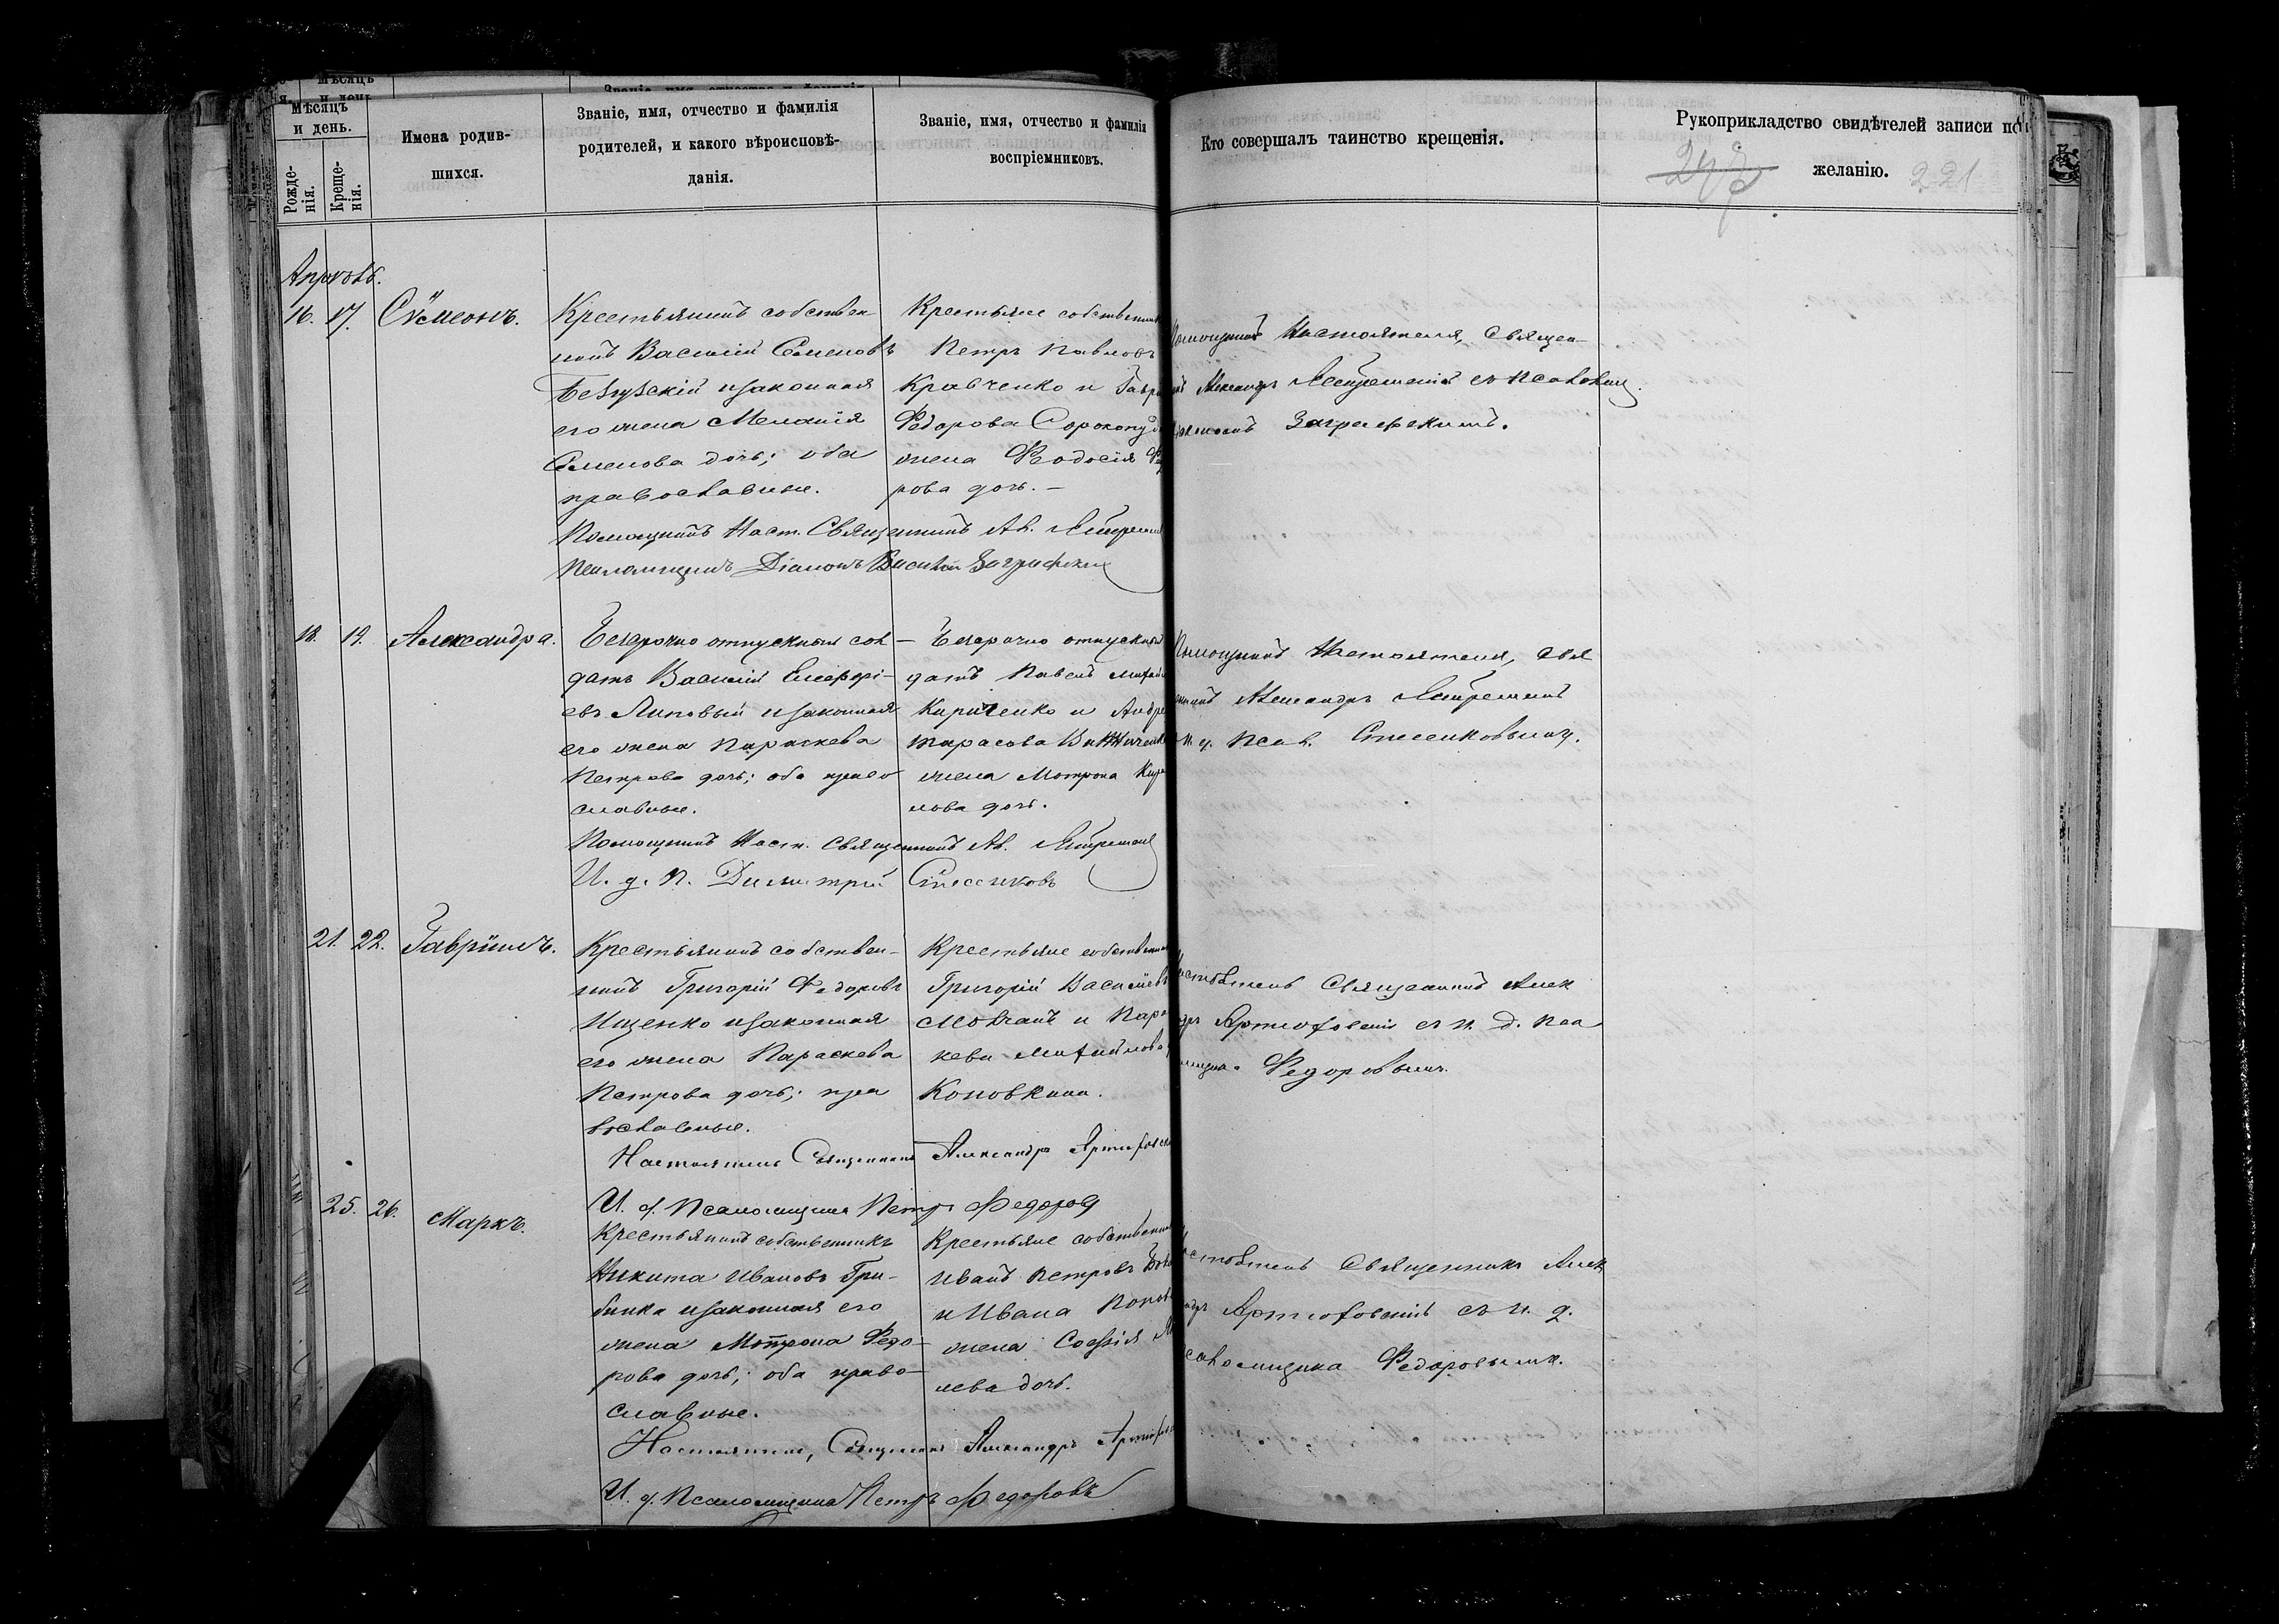 Мѣсяцъ
и день.
Рожде-
нія.
Креще-
нія.
Имена родив-
шихся.
Званіе, имя, отчество и фамилія
родителей, и какого вѣроисповѣ-
данія.
Званіе, имя, отчество и фамилія
воспріемниковъ.
Кто совершалъ таинство крещенія.
Рукоприкладство свидѣтелей записи по
желанію.
221
Апрѣль.
16. 17. Сѵмеонъ.
Крестьянинъ собствен-
никъ Василій Семеновъ
его жена Меланія
Семенова дочь; оба
православные.
Крестьяне собственник
Петръ Павловъ
Кравченко и Гавр
Федорова Сорокопуд
жена Феодосія Фе
рова дочь. —
Помощникъ Настоятеля, Священ-
Александръ
Заграфскимъ.
Помощникъ Наст. Священникъ Ал.
Псаломщикъ Діаконъ Василій Заграфскій
18. 19. Александра.
Безсрочно отпускный сол-
датъ Василій Елевфері-
евъ Липовый и законная
его жена Параскева
Петрова дочь; оба право
славные.
Безсрочно отпускный
датъ Павелъ Михай
Кириченко и Андре
Тарасова
жена Мотрона Кири
лова дочь.
Помощникъ Настоятеля, Свя
Александръ
и. д. Псал. Стесенковымъ.
Помощникъ Наст. Священникъ Ал.
И. д. П. Димитрій Стесенковъ
21. 22. Гавріилъ.
Крестьянинъ собствен-
никъ Григорій Федоровъ
Ищенко и законная
его жена Параскева
Петрова дочь; пра
вославные.
Крестьяне собственник
Григорій Васильевъ
Мовчанъ и Пара
кева Михайлова
Коновкина.
Священникъ Алек
Артюховскій съ и. д. Пса
Федоровымъ.
Настоятель Священникъ Александръ Артюховск
И. д. Псаломщика Петръ Федоровъ
25. 26. Маркъ.
Крестьянинъ собственникъ
Никита Ивановъ Гри-
бинка и законная его
жена Мотрона Федо-
рова дочь; оба право-
славные.
Крестьяне собственник
Иванъ Петровъ
и Ивана
жена Софія
лева дочь.
Священникъ Алек
Артюховскій съ и. д.
саломщика Федоровымъ.
Настоятель, Священникъ Александръ Артюхов
И. д. Псаломщика Петръ Федоровъ